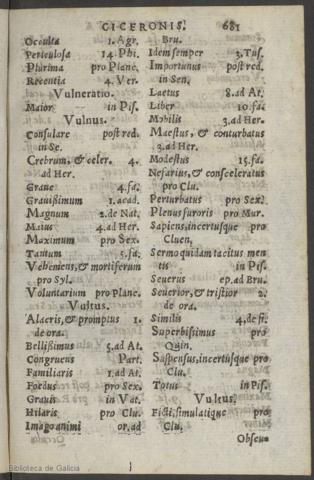 CICERONIS. 681
Occulta 1. Agr.
Periculosa 14. Phi.
Plurima pro Planc.
Recentia 4. Ver.
Vulneratio.
Maior in Pis.
Vulnus.
Consulare post red.
in Se.
Crebrum, & celer. 4.
ad Her.
Graue 4. fa.
Grauißimum 1. acad.
Magnum 2. de Nat.
Maius 4. ad Her.
Maximum pro Sex.
Tantum 5. fa.
Vehemens, & mortiferum
pro Syl.
Voluntarium pro Planc.
Vultus.
Alacris, & promptus 1.
de ora.
Bellißimus 5. ad At.
Congruens Part.
Familiaris 1. ad At.
Foedus pro Sex.
Grauis in Vat.
Hilaris pro Clu.
Imago animi or. ad
Bru.
Idem semper 3. Tus.
Importunus post red.
in Sen.
Laetus 8. ad At.
Liber 10. fa.
Mobilis 3. ad Her.
Maestus, & conturbatus
3. ad Her.
Modestus 15. fa.
Nefarius, & consceleratus
pro Clu.
Perturbatus pro Sex.
Plenus furoris pro Mur.
Sapiens, incertusque pro
Cluen.
Sermo quidam tacitus men
tis in Pis.
Seuerus ep. ad Bru.
Seuerior, & tristior 2.
de ora.
Similis 4. de fi.
Superbißimus pro
Quin.
Suspensus, incertusque pro
Clu.
Totus in Pis.
Vultus.
Ficti, simulatique pro
Clu.
Obscu-
Biblioteca de Galicia